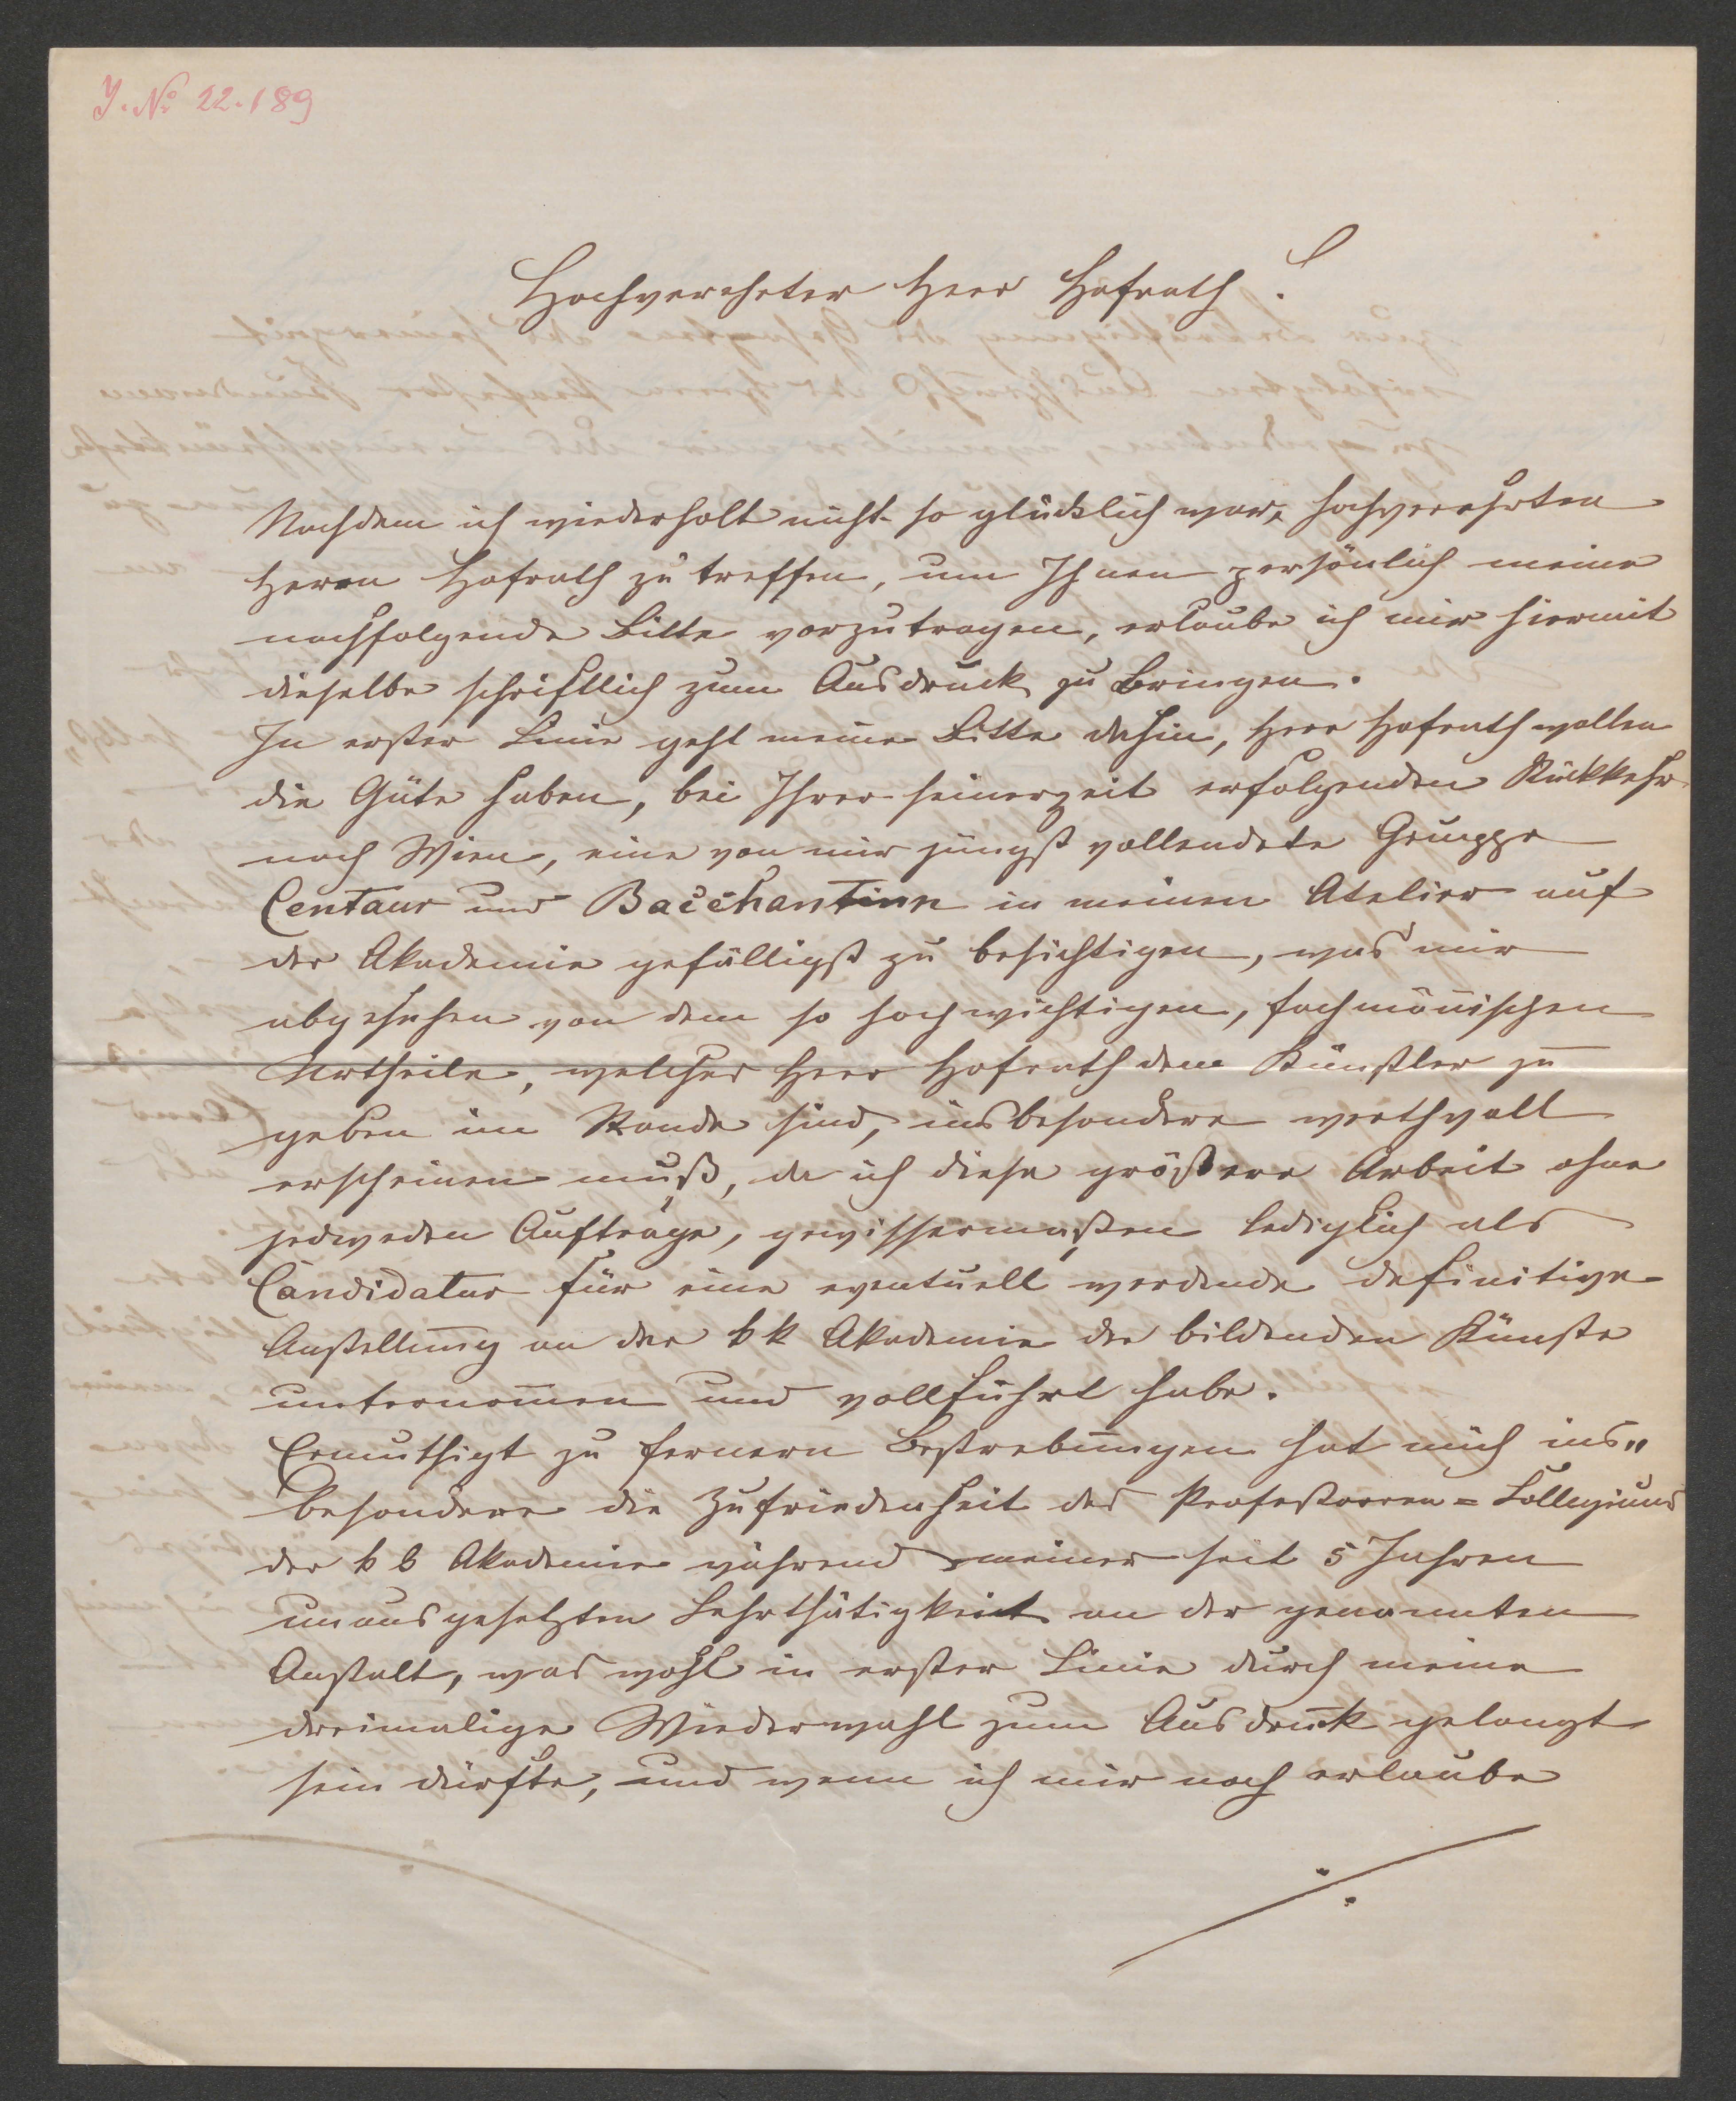 J. No 22.189
Hochverehrter Herr Hofrath!
Nachdem ich wiederholt nicht so glücklich war, hochverehrten
Herrn Hofrath zu treffen, um Ihnen persönlich meine
nachfolgende Bitte vorzutragen, erlaube ich mir hiermit
dieselbe schriftlich zum Ausdruck zu bringen.
In erster Linie geht meine Bitte dahin, Herr Hofrath wollen
die Güte haben, bei Ihrer seinerzeit erfolgenden Rückkehr
nach Wien, eine von mir jüngst vollendete Gruppe
Centaur und Bacchantinn in meinen Atelier auf
der Akademie gefälligst zu besichtigen, was mir
abgesehen von dem so hochwichtigen, fachmänischen
Urtheile, welches Herr Hofrath dem Künstler zu
geben im Stande sind, insbesondere werthvoll
erscheinen muß, da ich diese größere Arbeit ohne
jedweden Aufträge, gewissermaßen lediglich als
Candidatur für eine eventuell werdende definitive
Anstellung an der k k Akademie der bildenden Künste
unternom̄en und vollführt habe.
Ermuthigt zu fernern Bestrebungen hat mich ins„
besondere die Zufriedenheit des Professoren=Collegiums
der k k Akademie während meiner seit 5 Jahren
unausgesetzten Lehrthätigkeit an der genannten
Anstalt, was wohl in erster Linie durch meine
dreimalige Wiederwahl zum Ausdruck gelangt
sein dürfte, und wenn ich mir noch erlaube
./.